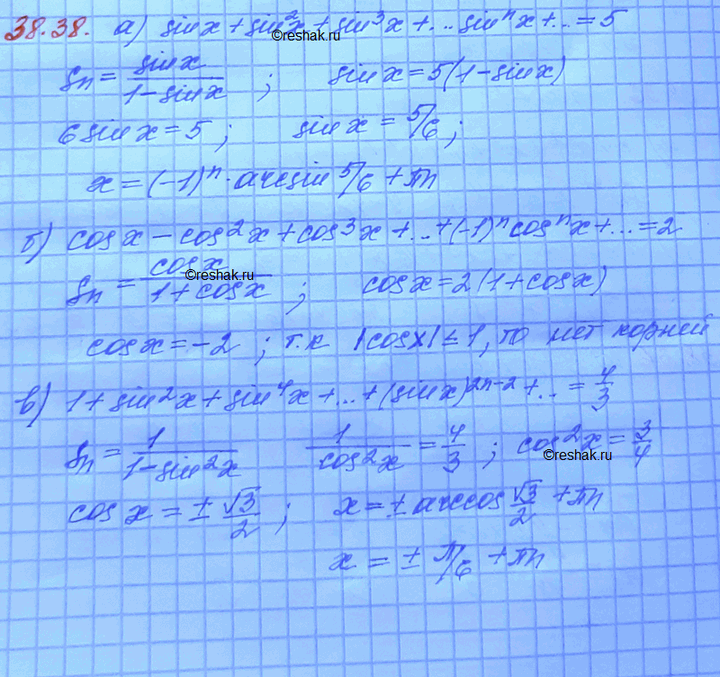 38.38. а) sinx + sin²x + sin³x + … sinⁿx + … = 5
©reshak.ru
Sn = sinx / (1 - sinx) ; sinx = 5(1 - sinx)
6sinx = 5 ; sinx = 5/6 ;
x = (-1)ⁿ · arcsin 5/6 + πn
б) cosx - cos²x + cos³x + … + (-1)ⁿ cosⁿx + … = 2
©reshak.ru
Sn = cosx / (1 + cosx) ; cosx = 2(1 + cosx)
cosx = -2 ; т.к |cosx| ≤ 1, то нет корней
в) 1 + sin²x + sin⁴x + … + (sinx)²ⁿ⁻² + … = 4/3
Sn = 1 / (1 - sin²x) 1 / cos²x = 4/3 ; cos²x = 3/4
©reshak.ru
cosx = ± √3/2 ; x = ± arccos √3/2 + πn
x = ± π/6 + πn